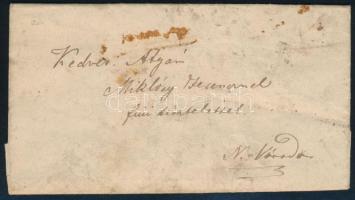 Kedves Atyám
Miklósy
fiui tisztelettel
N. Várad